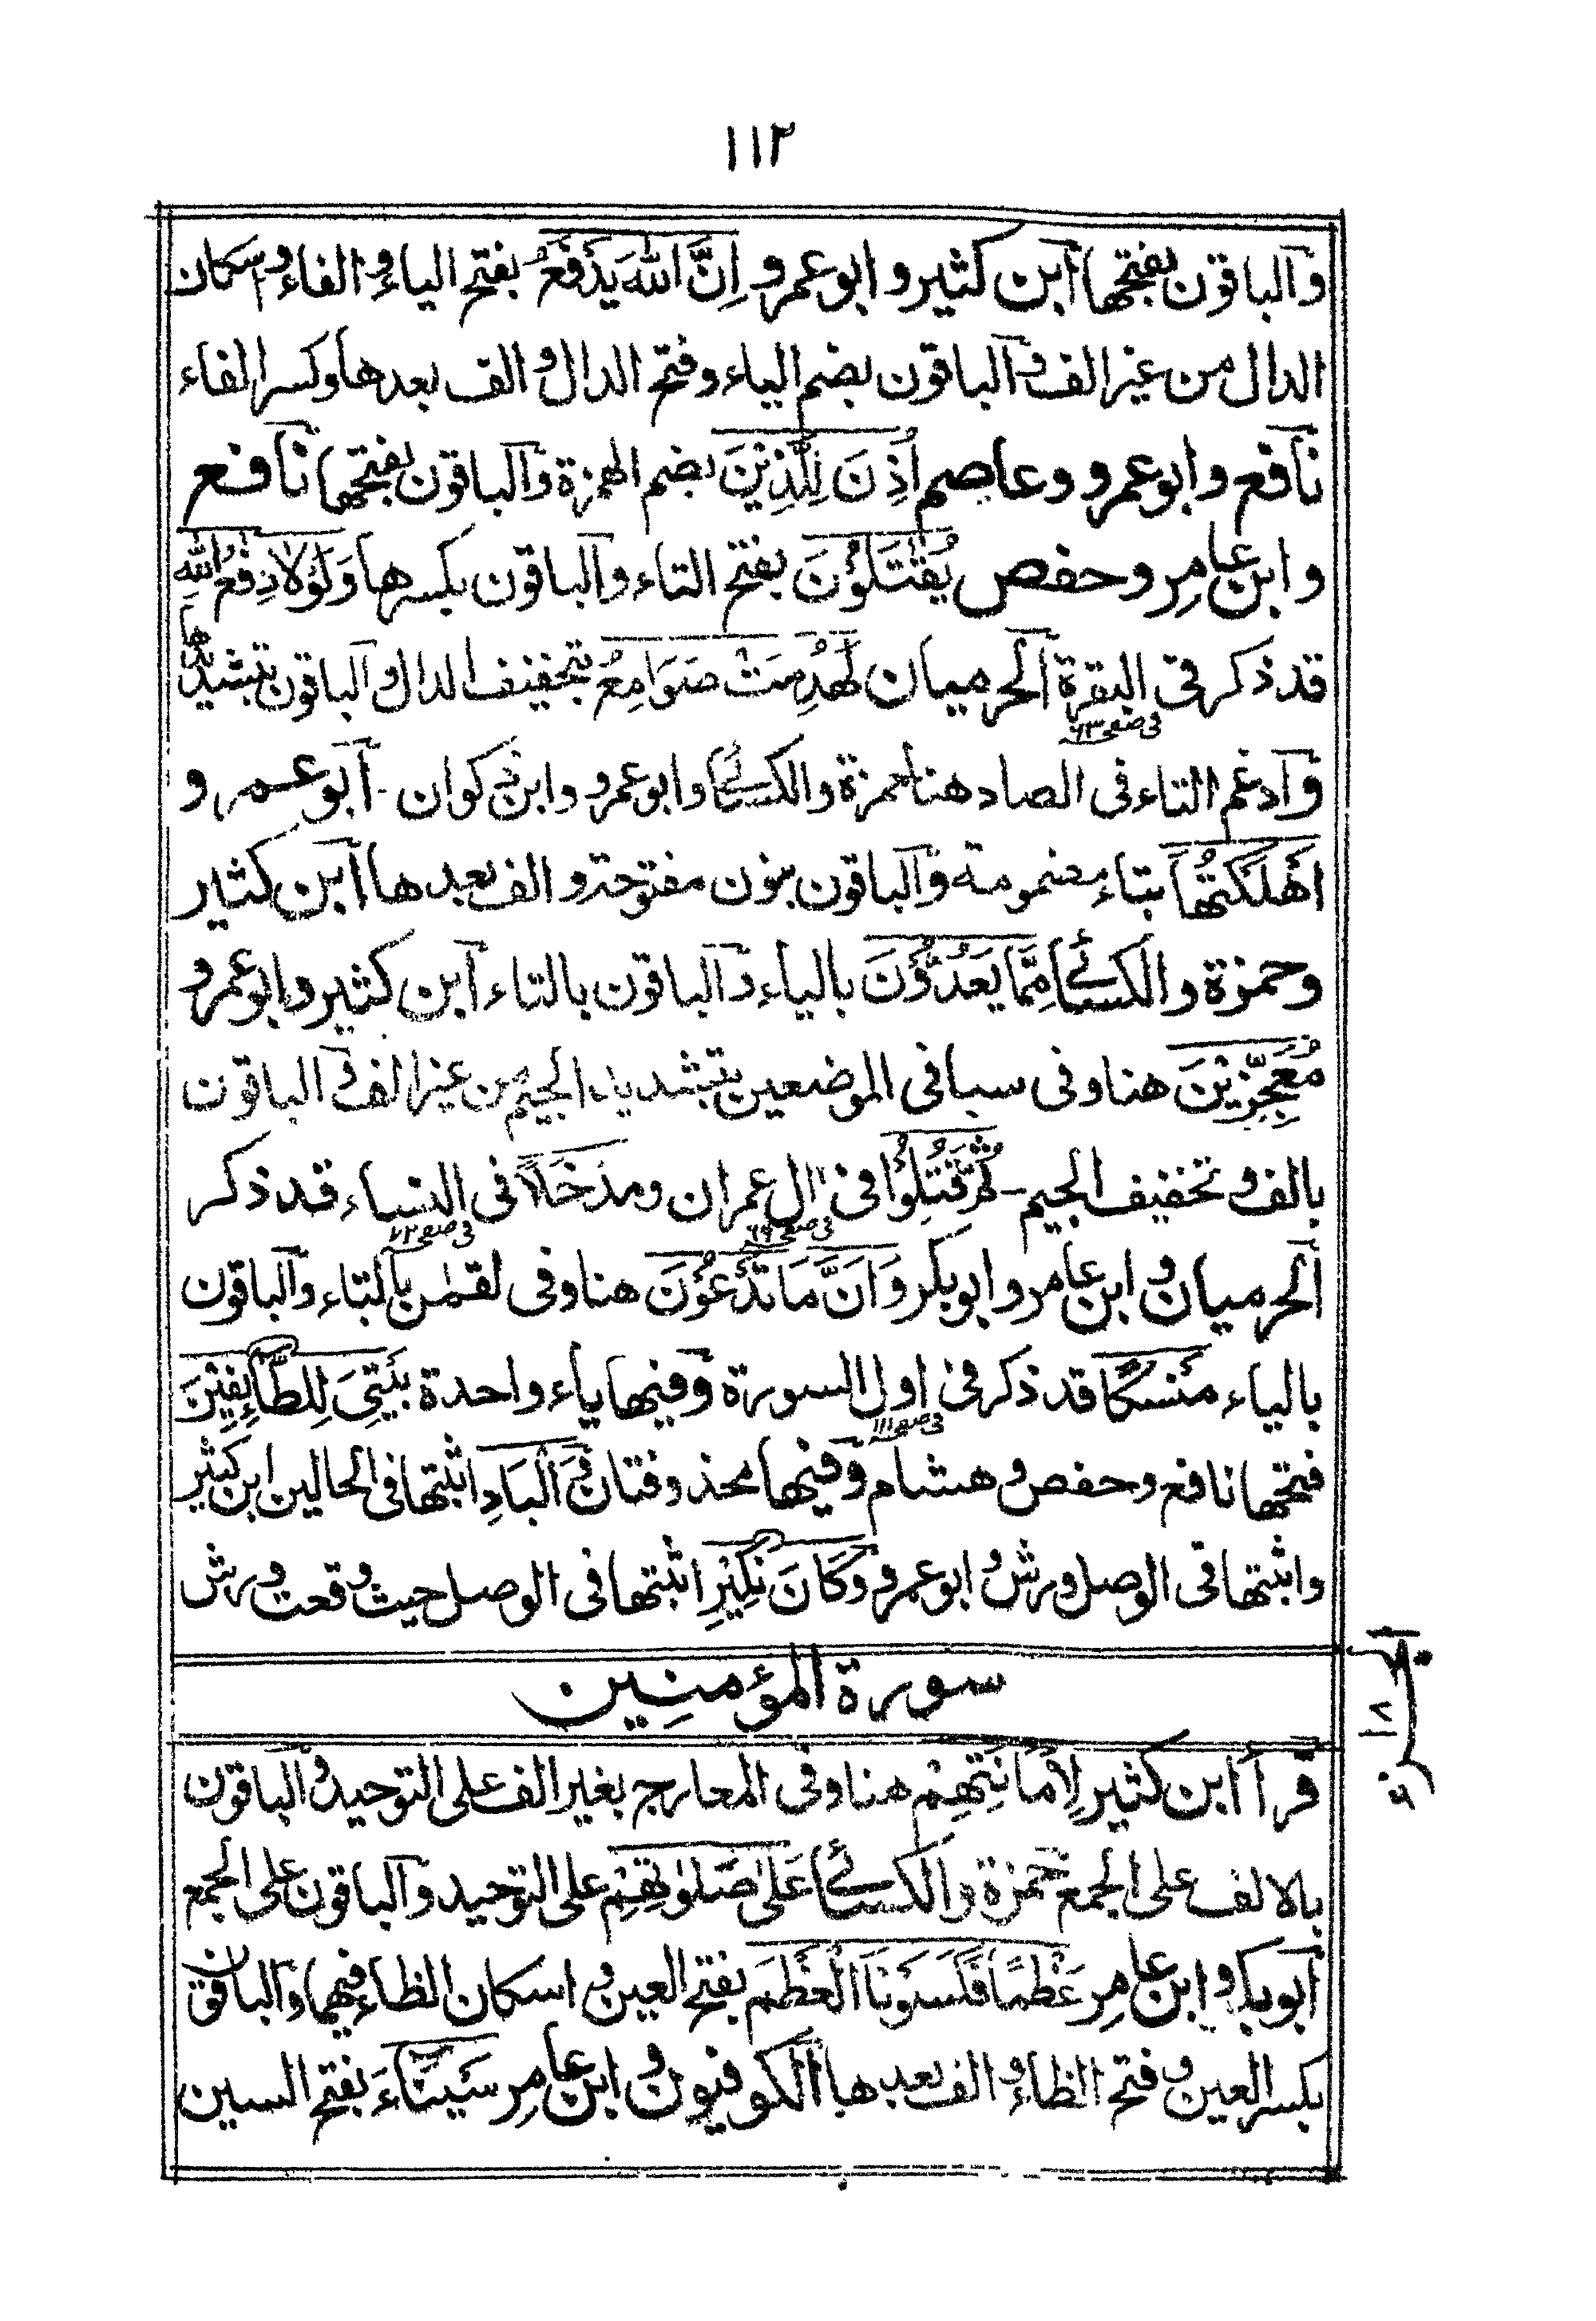 ١١٢
والباقون بفتحها ابن كثير و ابو عمرو اِنَّ اللّٰهَ يَدْفَعُ بفتح الياء و الفاء و اسكان
الدال من غير الف و الباقون بضم الياء و فتح الدال و الف بعدها وكسر الفاء
نافع و ابو عمرو و عاصم اُذِنَ لِلَّذِيْنَ بضم الهمزة و الباقون بفتحها نافع
و ابن عامر و حفص يُقٰتَلُوْنَ بفتح التاء والباقون بكسرها وَلَوْلَا دِفٰعُ اللّٰهِ
قد ذكر فى البقرة الحرميان لَهُدِمَتْ صَوَامِعُ بتخفيف الدال و الباقون بتشديدها
فى صفحه ٦٣
وادغم التاء فى الصاد هنا حمزة والكسائى و ابو عمرو و ابن ذكوان - ابو عمرو
اَهْلَكْتُهَا بتاء مضمومة والباقون بنون مفتوحة و الف بعدها ابن كثير
وحمزة والكسائى مِمَّا يَعُدُّوْنَ بالياء والباقون بالتاء ابن كثير و ابو عمرو
مُعَجِّزِيْنَ هنا وفى سبا فى الموضعين بتشديد الجيم من غير الف و الباقون
بالف و تخفيف الجيم - ثُمَّ قُتِلُوْا فى اٰل عمران ومدخلا فى النساء قد ذكر
فى صفحه ٦٩ فى صفحه ٧٢
الحرميان و ابن عامر و ابو بكر وَاَنَّ مَا تَدْعُوْنَ هنا وفى لقمٰن بالتاء والباقون
بالياء مَنْسَكًا قد ذكر فى اول السورة وفيها ياء واحدة بَيْتِىَ لِلطَّآئِفِيْنَ
فى صفحه ١١١
فتحها نافع و حفص و هشام وفيها محذوفتان وَ الْبَادِ اثبتها فى الحالين ابن كثير
واثبتها فى الوصل ورش و ابو عمرو وَكَانَ نَكِيْرِ اثبتها فى الوصل حيث وقعت ورش
سورة المؤمنين
قرأ ابن كثير لِاَمَانَتِهِمْ هنا وفى المعارج بغير الف على التوحيد و الباقون
بالالف على الجمع حمزة و الكسائى عَلٰى صَلٰوتِهِمْ على التوحيد والباقون على الجمع
ابو بكر و ابن عامر عَظْمًا فَكَسَوْنَا الْعَظْمَ بفتح العين و اسكان الظاء فيهما والباقون
بكسر العين و فتح الظاء و الف بعدها الكوفيون و ابن عامر سَيْنَآءَ بفتح السين